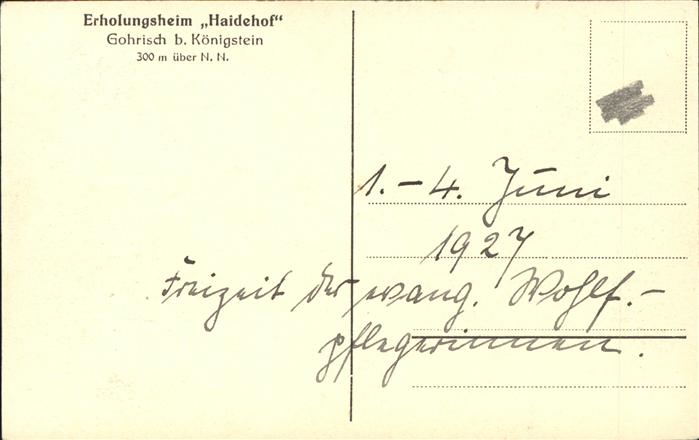 Erholungsheim „Haidehof“
Gohrisch b. Königstein
300 m über N. N.
1. – 4. Juni
1927
Freizeit der evang. Wohlf.-
pflegerinnen.